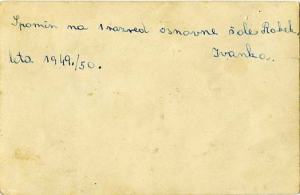 Spomin na 1 razred osnovne šole Robek
Ivanka.
leta 1949./50.